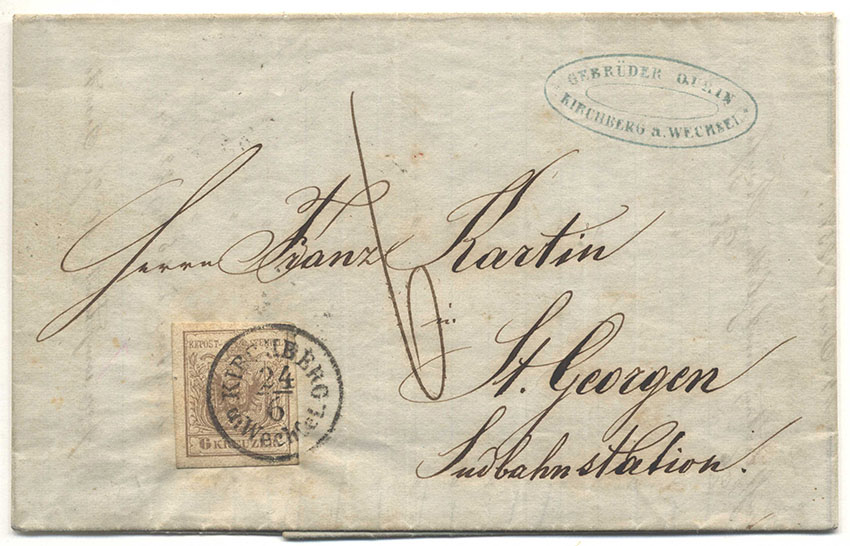 GEBRÜDER
KIRCHBERG a. WECHSEL
Herrn Franz Kartin
in
St. Georgen
Südbahnstation.
6
KIRCHBERG
24
6
a. Wechsel
6 KREUZER